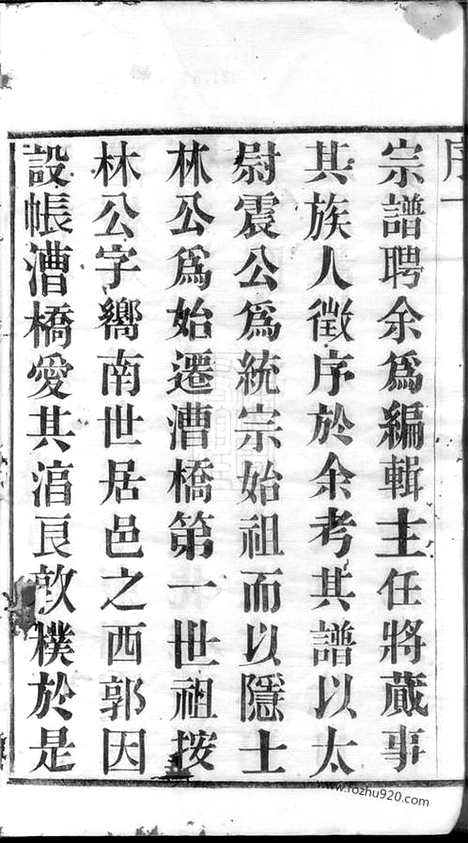 序一
宗譜聘余爲編輯主任將蕆事
其族人徵序於余考其譜以太
尉震公爲統宗始祖而以隱士
林公爲始遷漕橋第一世祖按
林公字嚮南世居邑之西郭因
設帳漕橋愛其湻良敦樸於是
www.fozhu920.com